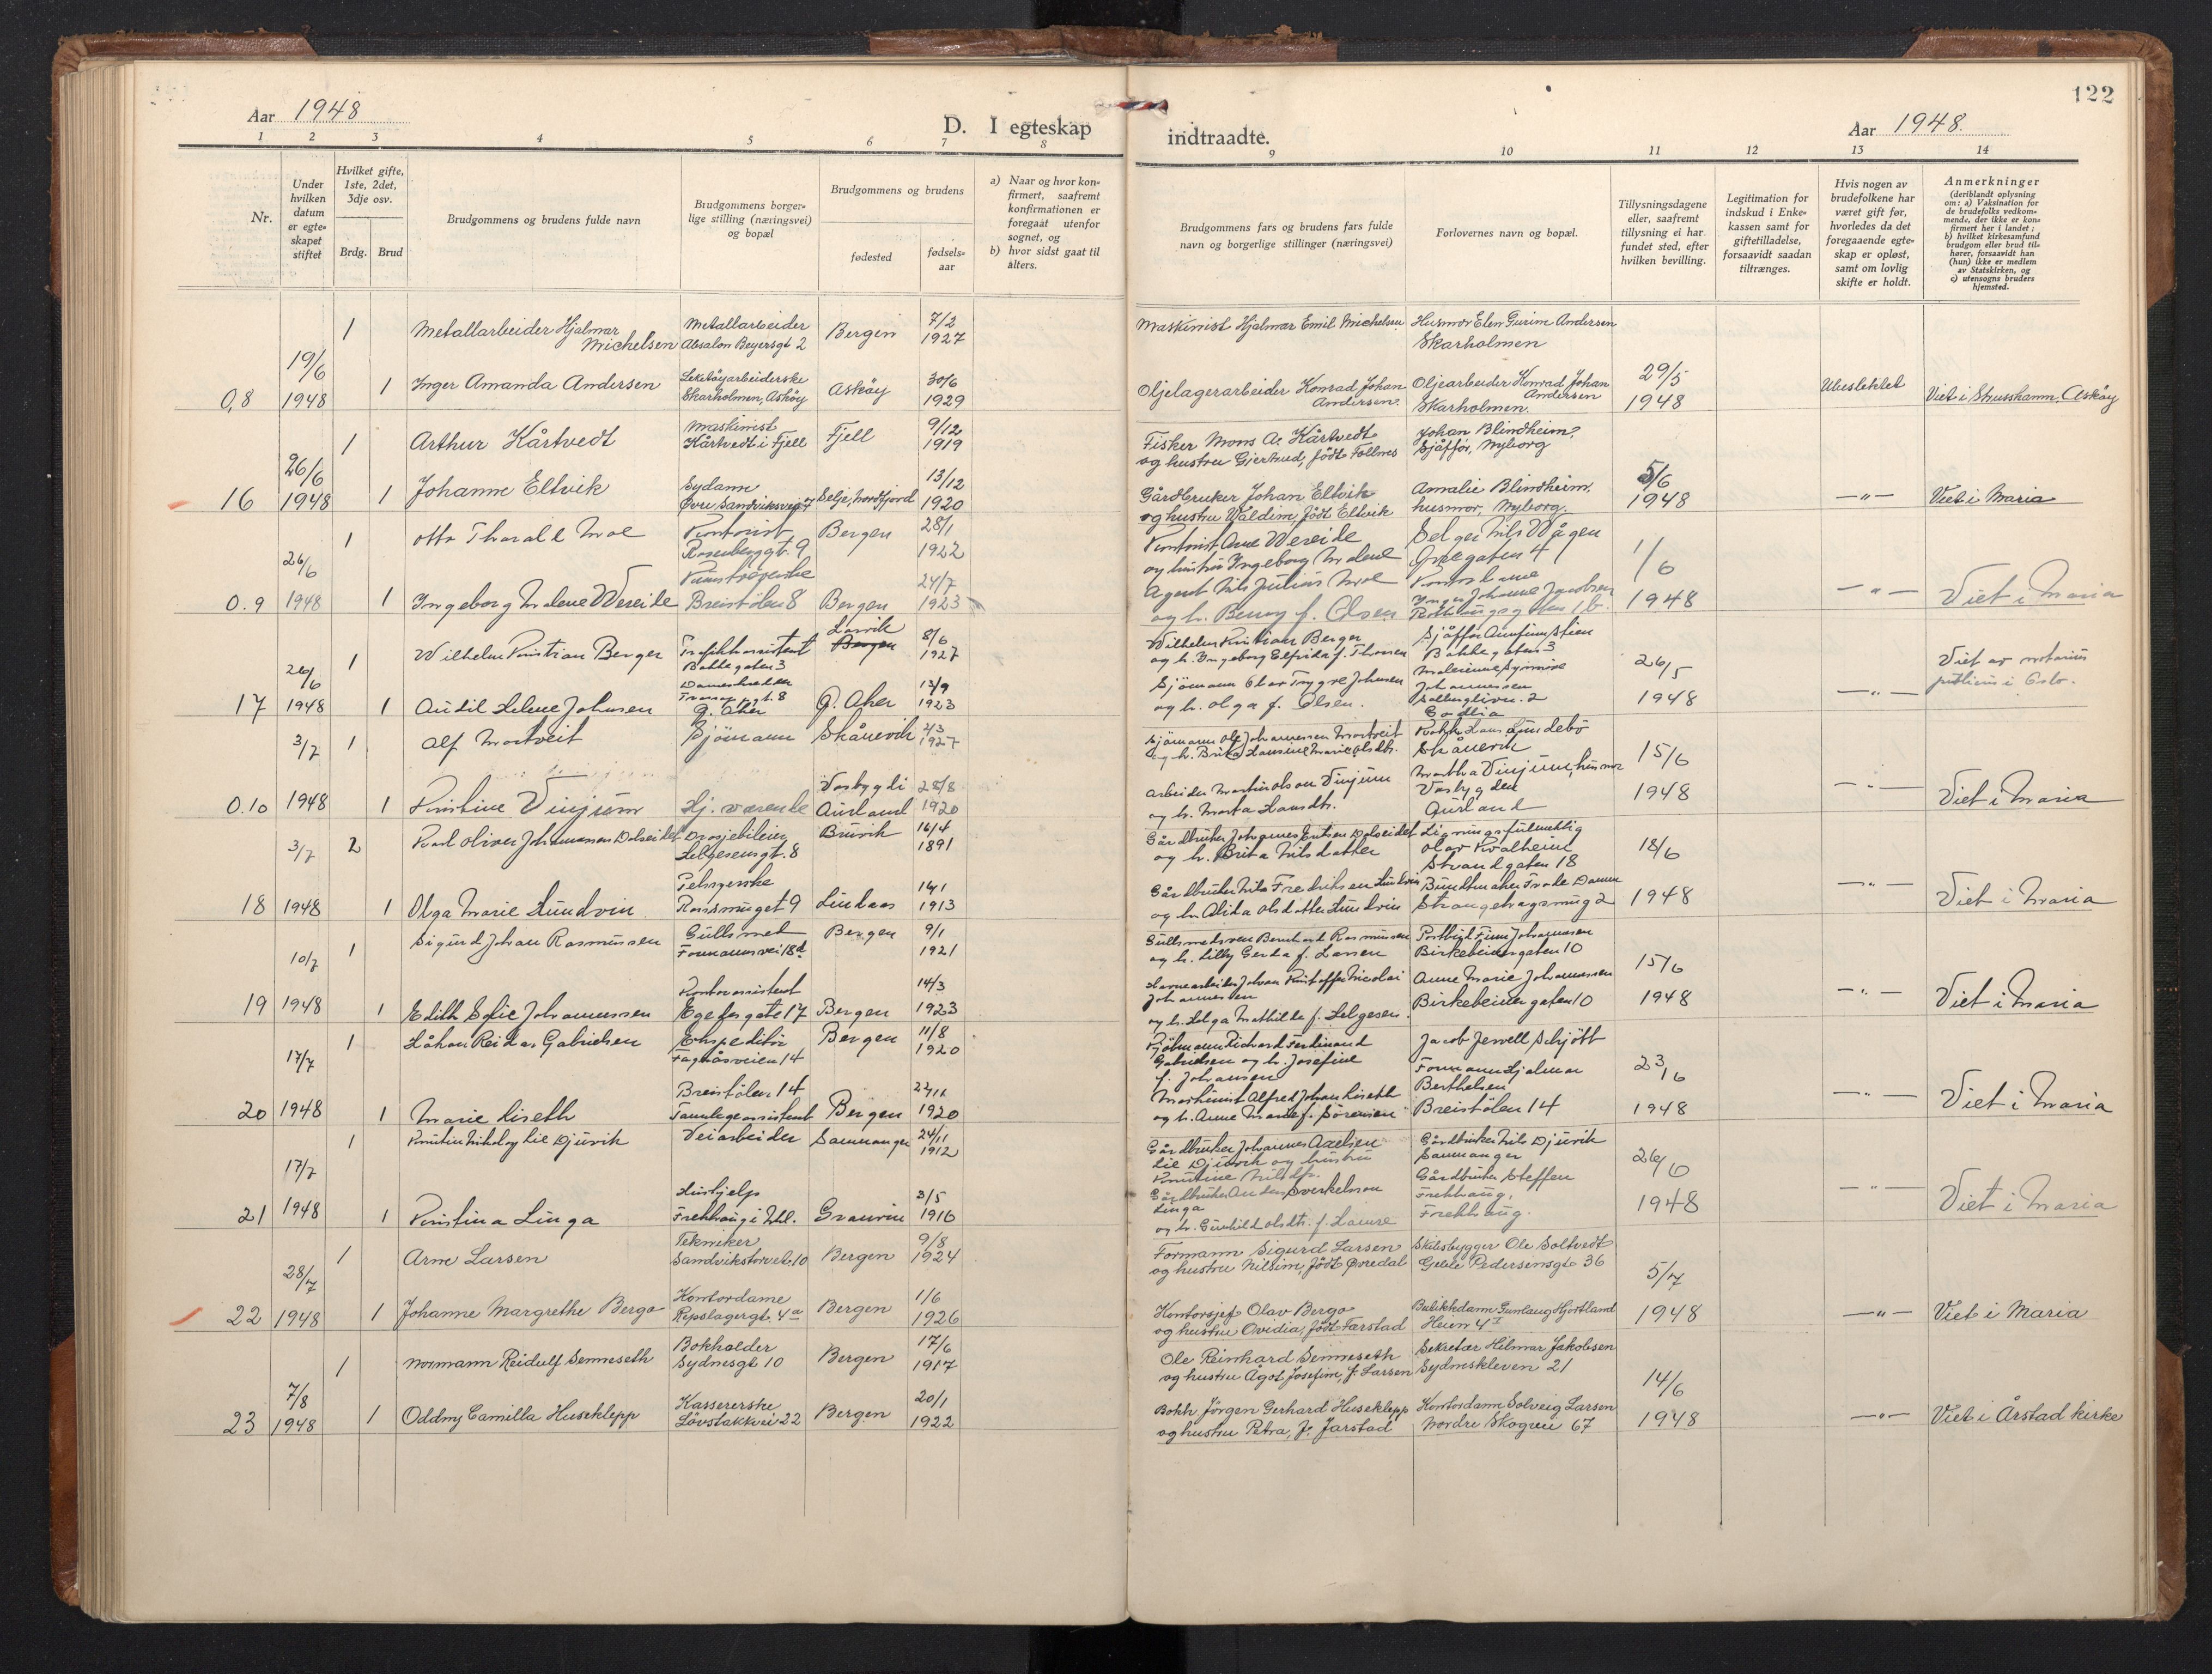 Aar 1948
D. I egteskap
indtraadte.
Aar 1948.
122
1 2 3 4 5 6 7 8 9 10 11 12 13 14
Nr.
Under hvilken datum er egte-skapet stiftet
Hvilket gifte, 1ste, 2det, 3dje osv.
Brdg. Brud
Brudgommens og brudens fulde navn
Brudgommens borger-lige stilling (næringsvei) og bopæl
Brudgommens og brudens
fødested
fødsels-aar
a) Naar og hvor kon-firmert, saafremt konfirmationen er foregaat utenfor sognet, og
b) hvor sidst gaat til alters.
Brudgommens fars og brudens fars fulde navn og borgerlige stillinger (næringsvei)
Forlovernes navn og bopæl.
Tillysningsdagene eller, saafremt tillysning ei har fundet sted, efter hvilken bevilling.
Legitimation for indskud i Enke-kassen samt for giftetilladelse, forsaavidt saadan tiltrænges.
Hvis nogen av brudefolkene har været gift før, hvorledes da det foregaaende egte-skap er opløst, samt om lovlig skifte er holdt.
Anmerkninger (deriblandt oplysning om: a) Vaksination for de brudefolks vedkom-mende, der ikke er kon-firmert her i landet; b) hvilket kirkesamfund brudgom eller brud til-hører, forsaavidt han (hun) ikke er medlem av Statskirken, og c) utensogns bruders hjemsted.
1 Metallarbeider Hjalmar Michelsen Metallarbeider Absalon Beyersgt 2 Bergen 7/2 1927 Maskinist Hjalmar Emil Michelsen Husmor Elen Gurine Andersen Skarholmen
0,8 19/6 1948 1 Inger Amanda Andersen Leketøyarbeiderske Skarholmen, Askøy Askøy 30/6 1929 Oljelagerarbeider Konrad Johan Andersen. Oljearbeider Konrad Johan Andersen Skarholmen. 29/5 1948 Ubeslektet Viet i Strusshamn, Askøy
1 Arthur Kårtvedt Maskinist Kårtvedt i Fjell Fjell 9/12 1919 Fisker Mons A. Kårtvedt og hustru Gjertrud, født Follnes Johan Blindheim, Sjåffør, Nyborg
16 26/6 1948 1 Johanne Eltvik Sydame Øvre Sandviksvei 7 Selje, Nordfjord 13/12 1920 Gårdbruker Johan Eltvik og hustru Valdine, født Eltvik Amalie Blindheim, husmor, Nyborg. 5/6 1948 —"— Viet i Maria
1 Otto Moe Kontorist Rosenberggt. 9 Bergen 28/1 1922 Kontorist Arne Wereide og hustru Ingeborg Malene Nils Vågen 4
0.9 26/6 1948 1 Ingeborg Malene Wereide Breistølen 8 Bergen 24/7 1923 Agent Nils Julius Moe og h. Benny f. Olsen Inger Johanne Jacobsen 1/6 1948 —"— Viet i Maria
1 Wilhelm Kristian Berger Trafikkassistent Bakkegaten 3 Larvik Bergen 8/6 1927 Wilhelm Kristian Berger og h. Ingeborg Elfrida f. Thorsen Sjåffør Arnfinn Steen Bakkegaten 3
17 26/6 1948 1 Audil Helene Johnsen G. Aker G. Aker 13/9 1923 Sjømann Olav Trygve Johnsen og h. Olga f. Olsen. Johannessen Godlia 26/5 1948 —"— Viet av notarius publicus i Oslo.
3/7 1 Alf Mortveit Sjømann Skånevik 2/3 1927 Sjømann Ole Johannessen Mortveit og h. Brita Hansine Marie Olsdtr. Skånevik 15/6
0.10 1948 1 Kristine Vinjum Hj. værende Vasbygdi Aurland 28/8 1920 Arbeider Martin Olson Vinjum og h. Marta Hansdtr. Martha Vinjum, husmor Vasbygden Aurland 1948 —"— Viet i Maria
3/7 2 Karl Oliver Johannessen Dalseidet Drosjebileier Helgesensgt. 8 Bruvik 16/4 1891 Gårdbruker Johannes Knutsen Dalseidet og h. Brita Nilsdatter Ligningsfullmektig Olav Kvalheim Strandgaten 18 18/6
18 1948 1 Olga Marie Lundvin 9 Lindaas 14/1 1913 Gårdbruker Nils Fredriksen Lundvin og h. Alida Olsdatter Lundvin Buntmaker Frode Damm Strangehagsmug 2 1948 —"— Viet i Maria
10/7 1 Sigurd Johan Rasmussen Gullsmed Formannsvei 18d Bergen 9/1 1921 Gullsmedsven Bernhard Rasmussen og h. Lilly Gerda f. Larsen Postbud Finn Johannesen Birkebeinergaten 10 15/6
19 1948 1 Edith Sofie Johannessen Kontorassistent Egefesgate 17 Bergen 14/3 1923 Havnearbeider Johan Kristoffer Nicolai Johannessen og h. Helga Mathilde f. Helgesen. Anne Marie Johannessen Birkebeinergaten 10 1948 —"— Viet i Maria
17/7 1 Håkon Reidar Gabrielsen Ekspeditør Fageråsveien 14 Bergen 11/8 1920 Kjølmann Richard Ferdinand Gabrielsen og h. Josefine f. Johansen Jacob Jervell Schjøtt Formann Hjalmar Berthelsen 23/6
20 1948 1 Marie Liseth Breistølen 14 Tannlegeassistent Bergen 22/11 1920 Maskinist Alfred Johan Liseth og h. Anne Marie f. Sørensen Breistølen 14 1948 —"— Viet i Maria
17/7 1 Kristen Nikolay Lie Djuvik Veiarbeider Samnanger 24/11 1912 Gårdbruker Johannes Axelsen Lie Djuvik og hustru Kristine Nilsdtr. Gårdbruker Nils Djuvik Samnanger 26/6
21 1948 1 Kristina Linga Hushjelp Frekhaug i Mel. Granvin 3/5 1916 Gårdbruker Anders Sverkelsson Linga og h. Gunhild Olsdtr. f. Gårdbruker Steffen Frekhaug, Frekhaug. 1948 —"— Viet i Maria
1 Arne Larsen Tekniker Sandvikstorvet 10 Bergen 9/8 1924 Formann Sigurd Larsen og hustru Nilsine, født Øvredal Skibsbygger Ole Soltvedt Gelle Pedersensgt 36
22 28/7 1948 1 Johanne Margrethe Bergo Kontordame Repslagergt. 4a Bergen 1/6 1926 Kontorsjef Olav Bergo og hustru Ovidia, født Farstad Butikkdame Gunlaug Hjortland Heien 4 I 5/7 1948 —"— Viet i Maria
1 Normann Reidulf Senneseth Bokholder Sydnesgt 10 Bergen 17/6 1917 Ole Reinhard Senneseth og hustru Agot Josefine, f. Larsen Sekretær Helmar Jakobsen Sydneskleven 21
23 7/8 1948 1 Oddny Camilla Huseklepp Kassererske Løvstakkvei 22 Bergen 20/1 1922 Bokh Jørgen Gerhard Huseklepp og hustru Petra, f. Jarstad Kontordame Solveig Larsen Nordre Skogvei 67 14/6 1948 —"— Viet i Årstad kirke